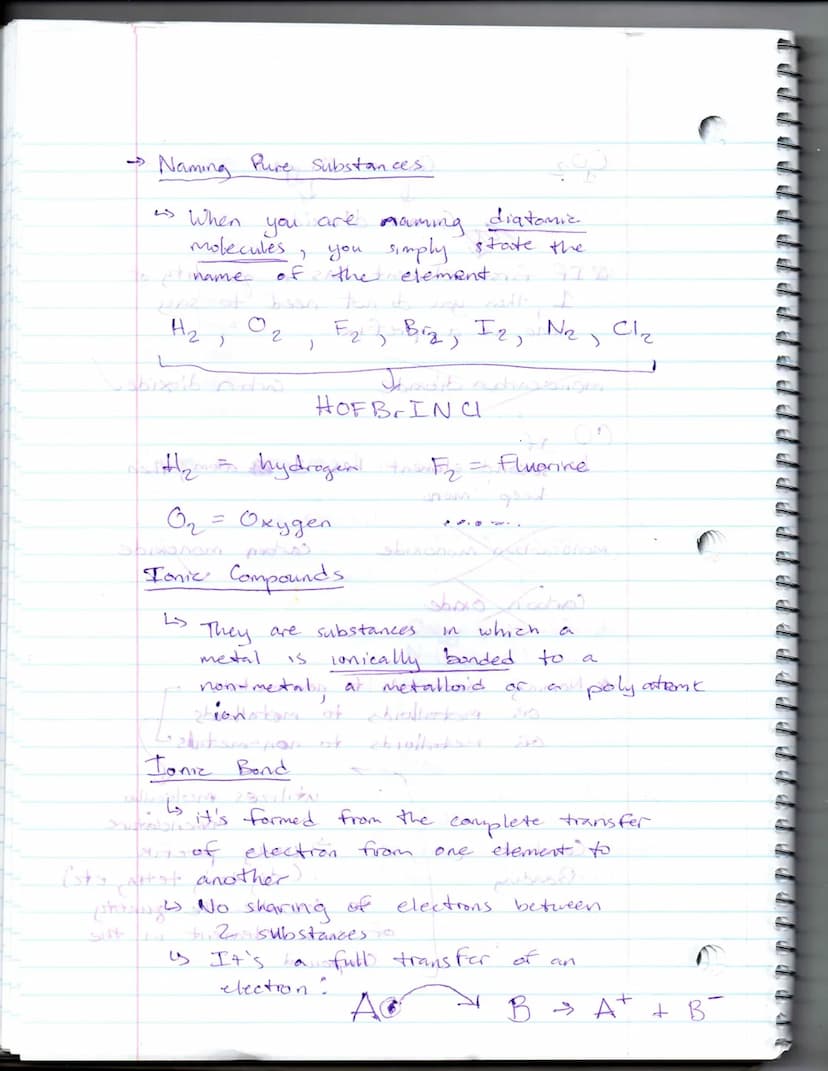 → Naming Pure Substances
↳ When you are naming diatomic
molecules, you simply state the
name of the element
H₂, O₂, F₂, Br₂, I₂, N₂, Cl₂
HOFBrINCl
H₂ = hydrogen F₂ = Fluorine
O₂ = Oxygen ......
Ionic Compounds
↳ They are substances in which a
metal is ionically bonded to a
non-metal, a metalloid or a polyatomic
ion
Ionic Bond
↳ it's formed from the complete transfer
of electron from one element to
another
↳ No sharing of electrons between
2 substances
↳ It's a full transfer of an
electron:
A B → A⁺ + B⁻